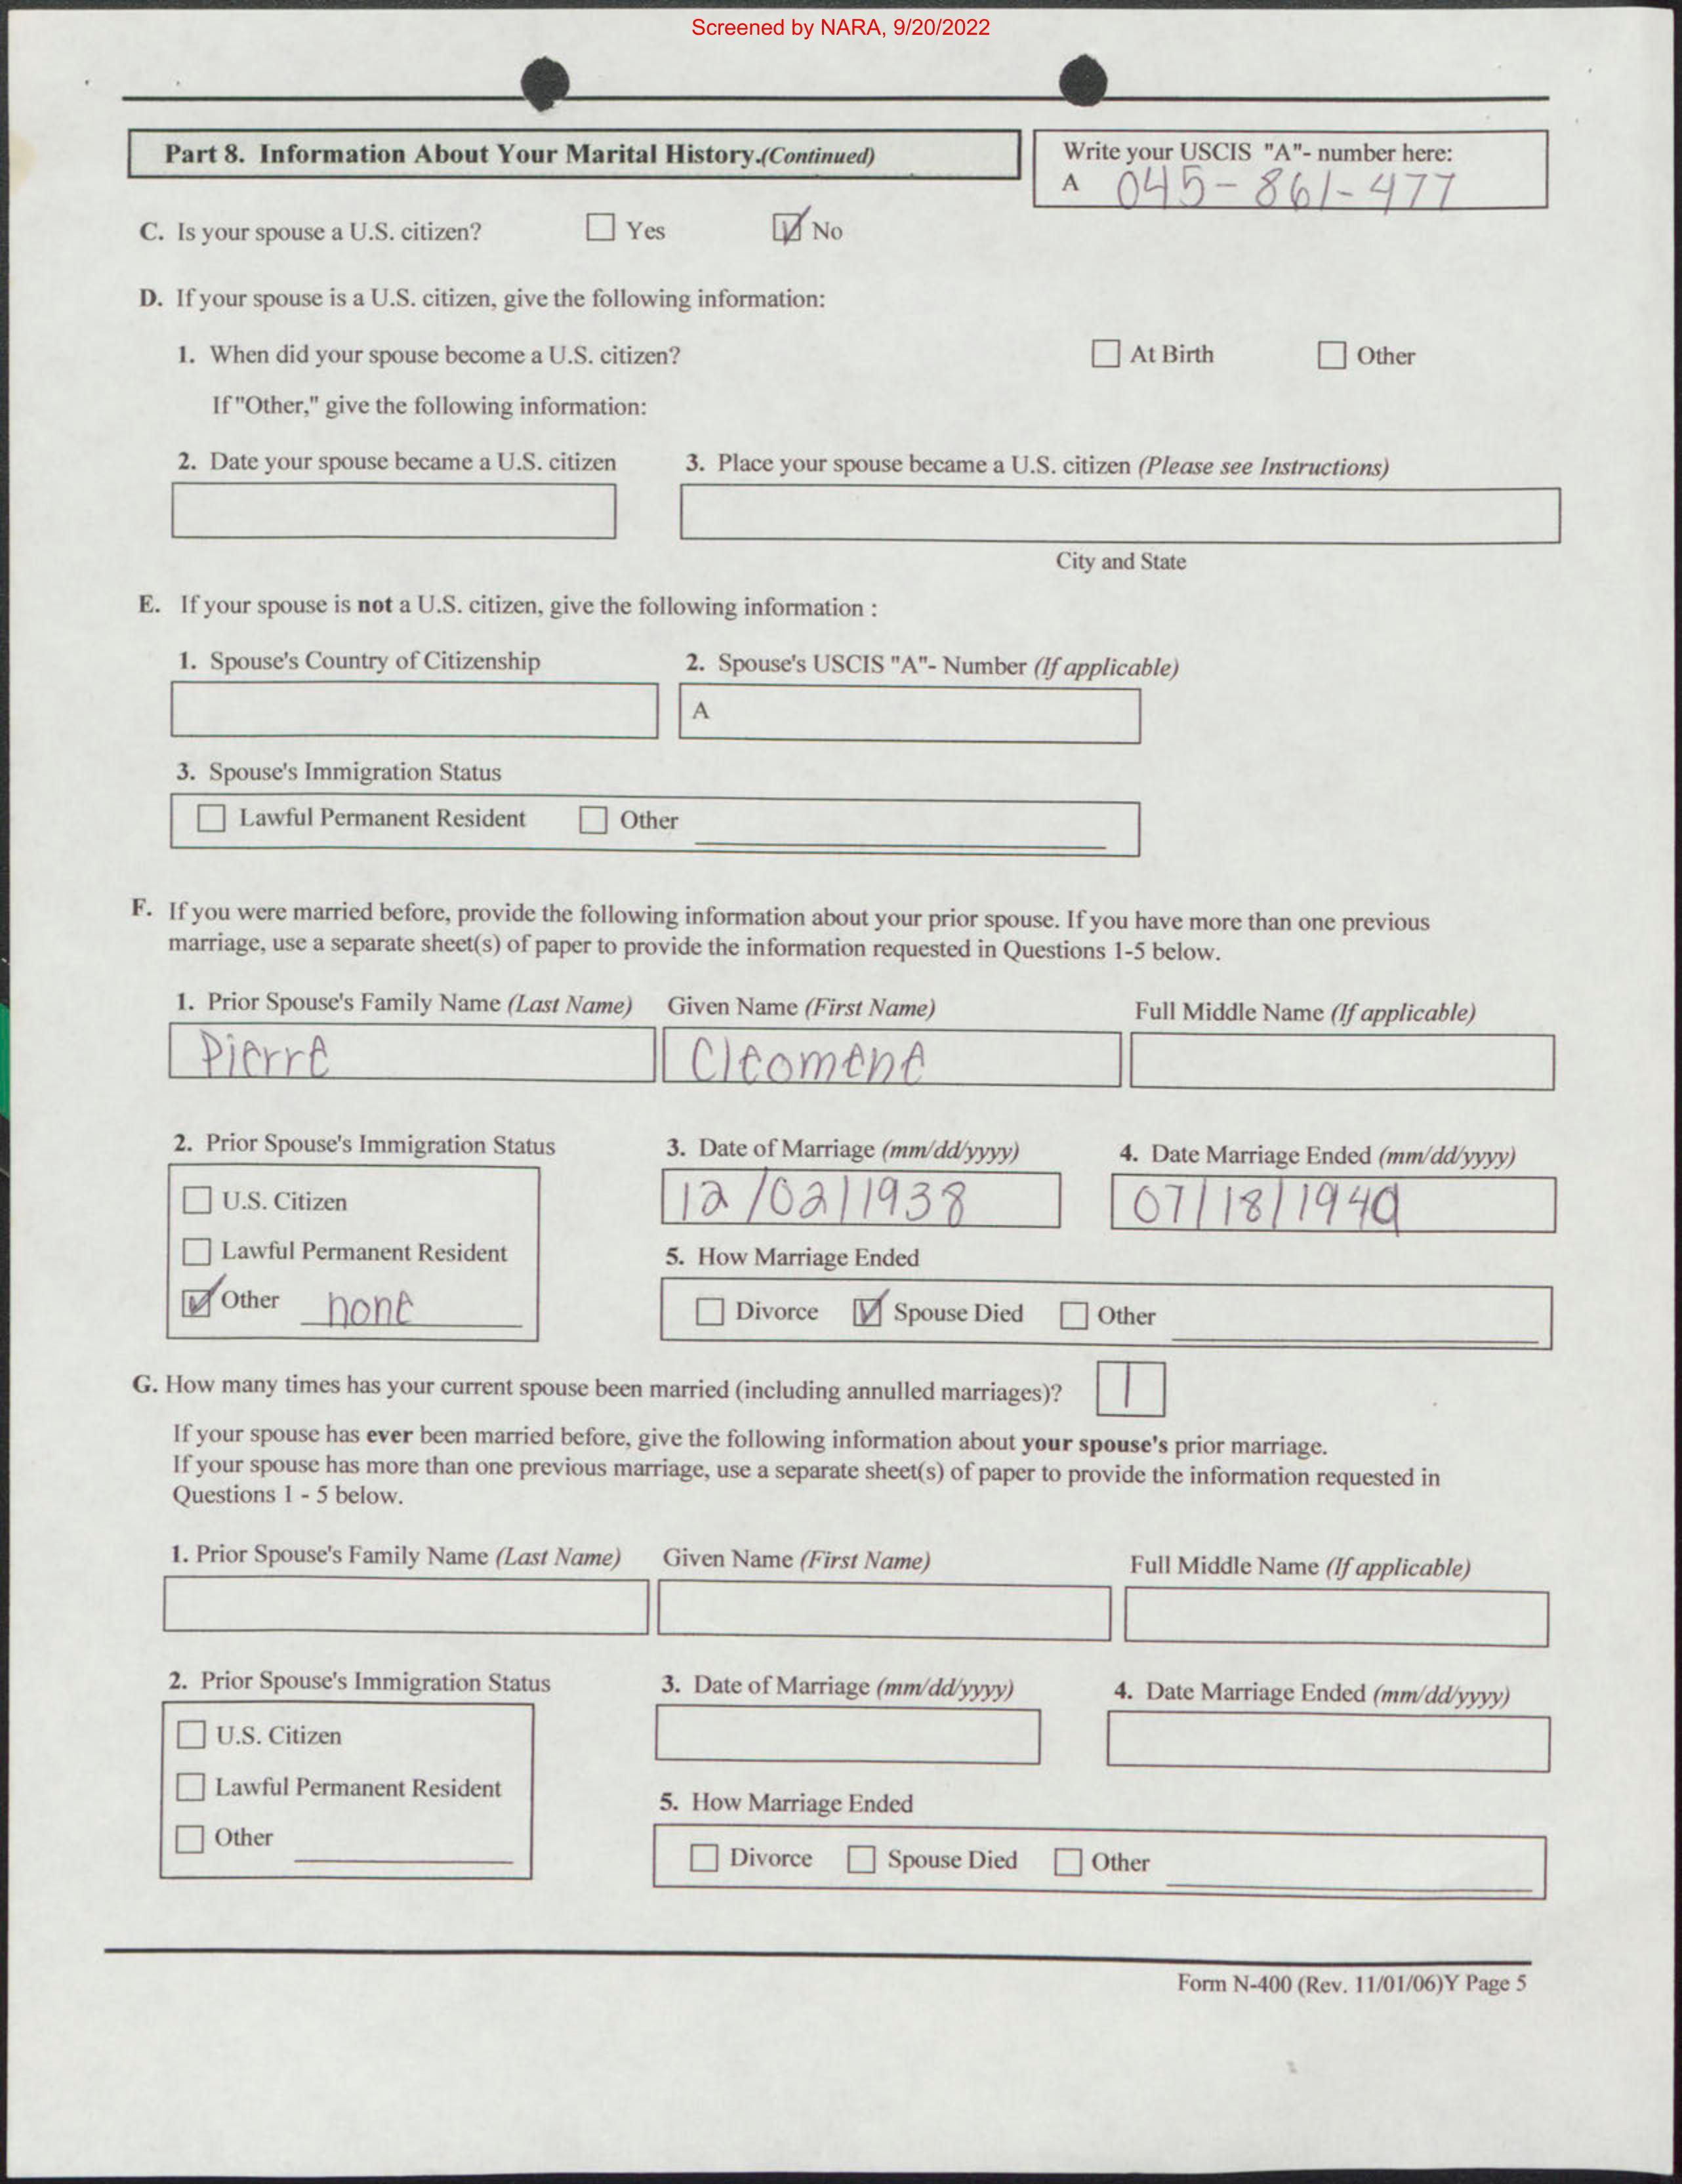 Screened by NARA, 9/20/2022
Part 8. Information About Your Marital History.(Continued)
Write your USCIS "A"- number here:
A 045-861-477
C. Is your spouse a U.S. citizen? Yes No
D. If your spouse is a U.S. citizen, give the following information:
1. When did your spouse become a U.S. citizen? At Birth Other
If "Other," give the following information:
2. Date your spouse became a U.S. citizen 3. Place your spouse became a U.S. citizen (Please see Instructions)
City and State
E. If your spouse is not a U.S. citizen, give the following information :
1. Spouse's Country of Citizenship 2. Spouse's USCIS "A"- Number (If applicable)
A
3. Spouse's Immigration Status
Lawful Permanent Resident Other
F. If you were married before, provide the following information about your prior spouse. If you have more than one previous
marriage, use a separate sheet(s) of paper to provide the information requested in Questions 1-5 below.
1. Prior Spouse's Family Name (Last Name) Given Name (First Name) Full Middle Name (If applicable)
Pierre Cleomene
2. Prior Spouse's Immigration Status 3. Date of Marriage (mm/dd/yyyy) 4. Date Marriage Ended (mm/dd/yyyy)
12/02/1938 07/18/1940
U.S. Citizen
Lawful Permanent Resident 5. How Marriage Ended
Other none Divorce Spouse Died Other
G. How many times has your current spouse been married (including annulled marriages)? 1
If your spouse has ever been married before, give the following information about your spouse's prior marriage.
If your spouse has more than one previous marriage, use a separate sheet(s) of paper to provide the information requested in
Questions 1 - 5 below.
1. Prior Spouse's Family Name (Last Name) Given Name (First Name) Full Middle Name (If applicable)
2. Prior Spouse's Immigration Status 3. Date of Marriage (mm/dd/yyyy) 4. Date Marriage Ended (mm/dd/yyyy)
U.S. Citizen
Lawful Permanent Resident 5. How Marriage Ended
Other Divorce Spouse Died Other
Form N-400 (Rev. 11/01/06)Y Page 5